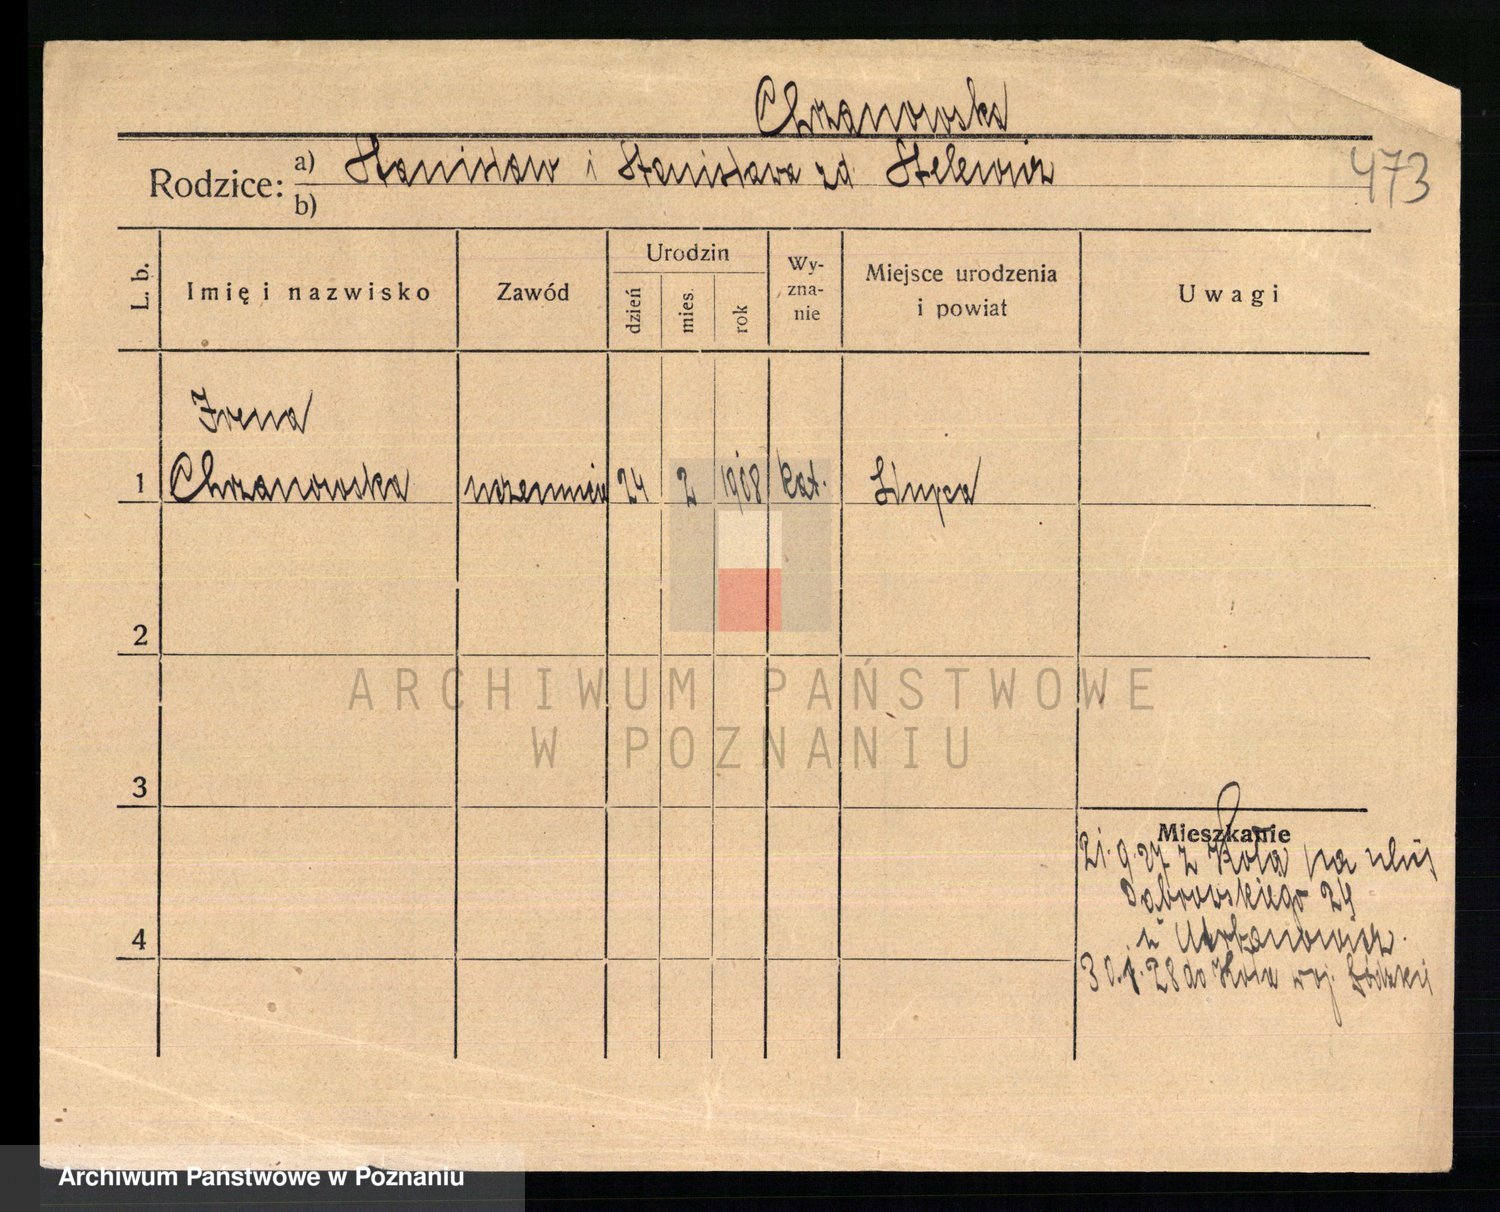 Chrzanowska
Rodzice: a) Stanisław i Stanisława zd Stelewicz
b)
473
L. b.
Imię i nazwisko
Zawód
Urodzin
dzień
mies.
rok
Wy-
zna-
nie
Miejsce urodzenia
i powiat
Uwagi
Irena
1 Chrzanowska uczennica 24 2 1908 kat. Słupca
2
ARCHIWUM PAŃSTWOWE
W POZNANIU
3
Mieszkanie
21.9.27 z Koła na ulicę
Dąbrowskiego 24
u Urbanowicz.
4
30.1.28 do Koła woj. Łódzkie
Archiwum Państwowe w Poznaniu